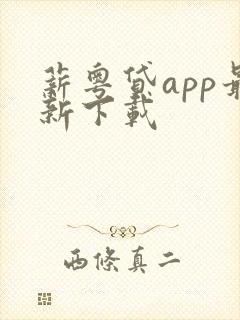 薪粤贷app最
新下载
西條真二